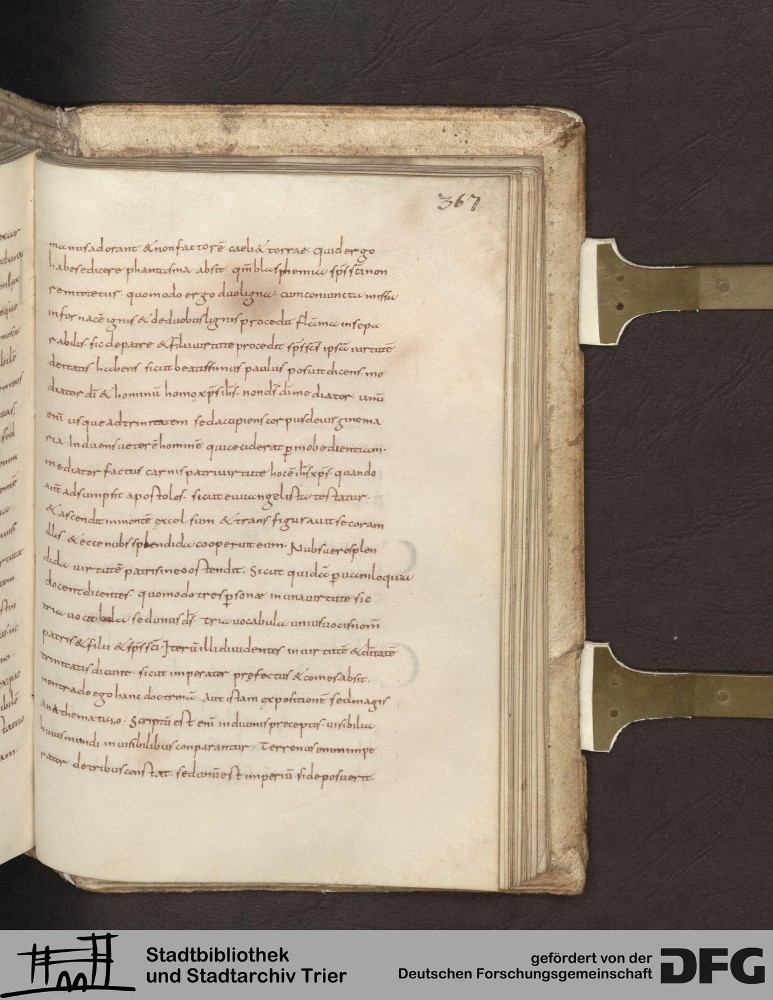 367
manusadorant & nonfactorē caeli & terrae. quidergo
habesedicere phantasma absit. qm̄ blasphemia sp̄sscīnon
remittetur. quomodo ergo duoligna cumconiuncta missa
infornacē ignis & deduobuslignis procedit flāma insepa
rabilis. sic depatre & filiiuirtute procedit sp̄sscs̄ ipsa uirtutē
deitatis habens sicut beatissimus paulus posuit dicens. me
diator dī & hominū homo xp̄s ih̄s. non dī dime diator unū
enī usque adtrinitatem sedaccipiens corpus deuirgine ma
ria. Induens ueterē hominē quiceciderat p̄ inobedientiam.
mediator factus carnis patriuirtute hocē ih̄s xp̄s. quando
autē adsumpsit apostolos. sicut euuangelista testatur
& ascendit inmontē excelsum & transfigurauit se coram
illis & ecce nubs splendida cooperuit eum. Nubs uero splen
dida uirtutē patris ineo ostendit. Sicut quidā p̄uaniloquia
docent dicentes quomodo tres p̄sonae in una uirtute sic
tria uocabula sed unus ds̄. tria uocabula unius uocis nom̄
patris & filii & sp̄sscī. Iterū illi diuidentes in uirtutē & ditatē
trinitatis dicunt. sicut imperator prefectus & comes absit.
non trado ego hanc doctrinā. aut istam expositionē sed magis
anathematizo. Scriptū est enī in diuinis preceptis. uisibilia
huius mundi inuisibilibus conparantur. Terrenus enim impe
rator de tribus constat. sed unū est imperiū. si deposuerit
Stadtbibliothek
und Stadtarchiv Trier
gefördert von der
Deutschen Forschungsgemeinschaft
DFG